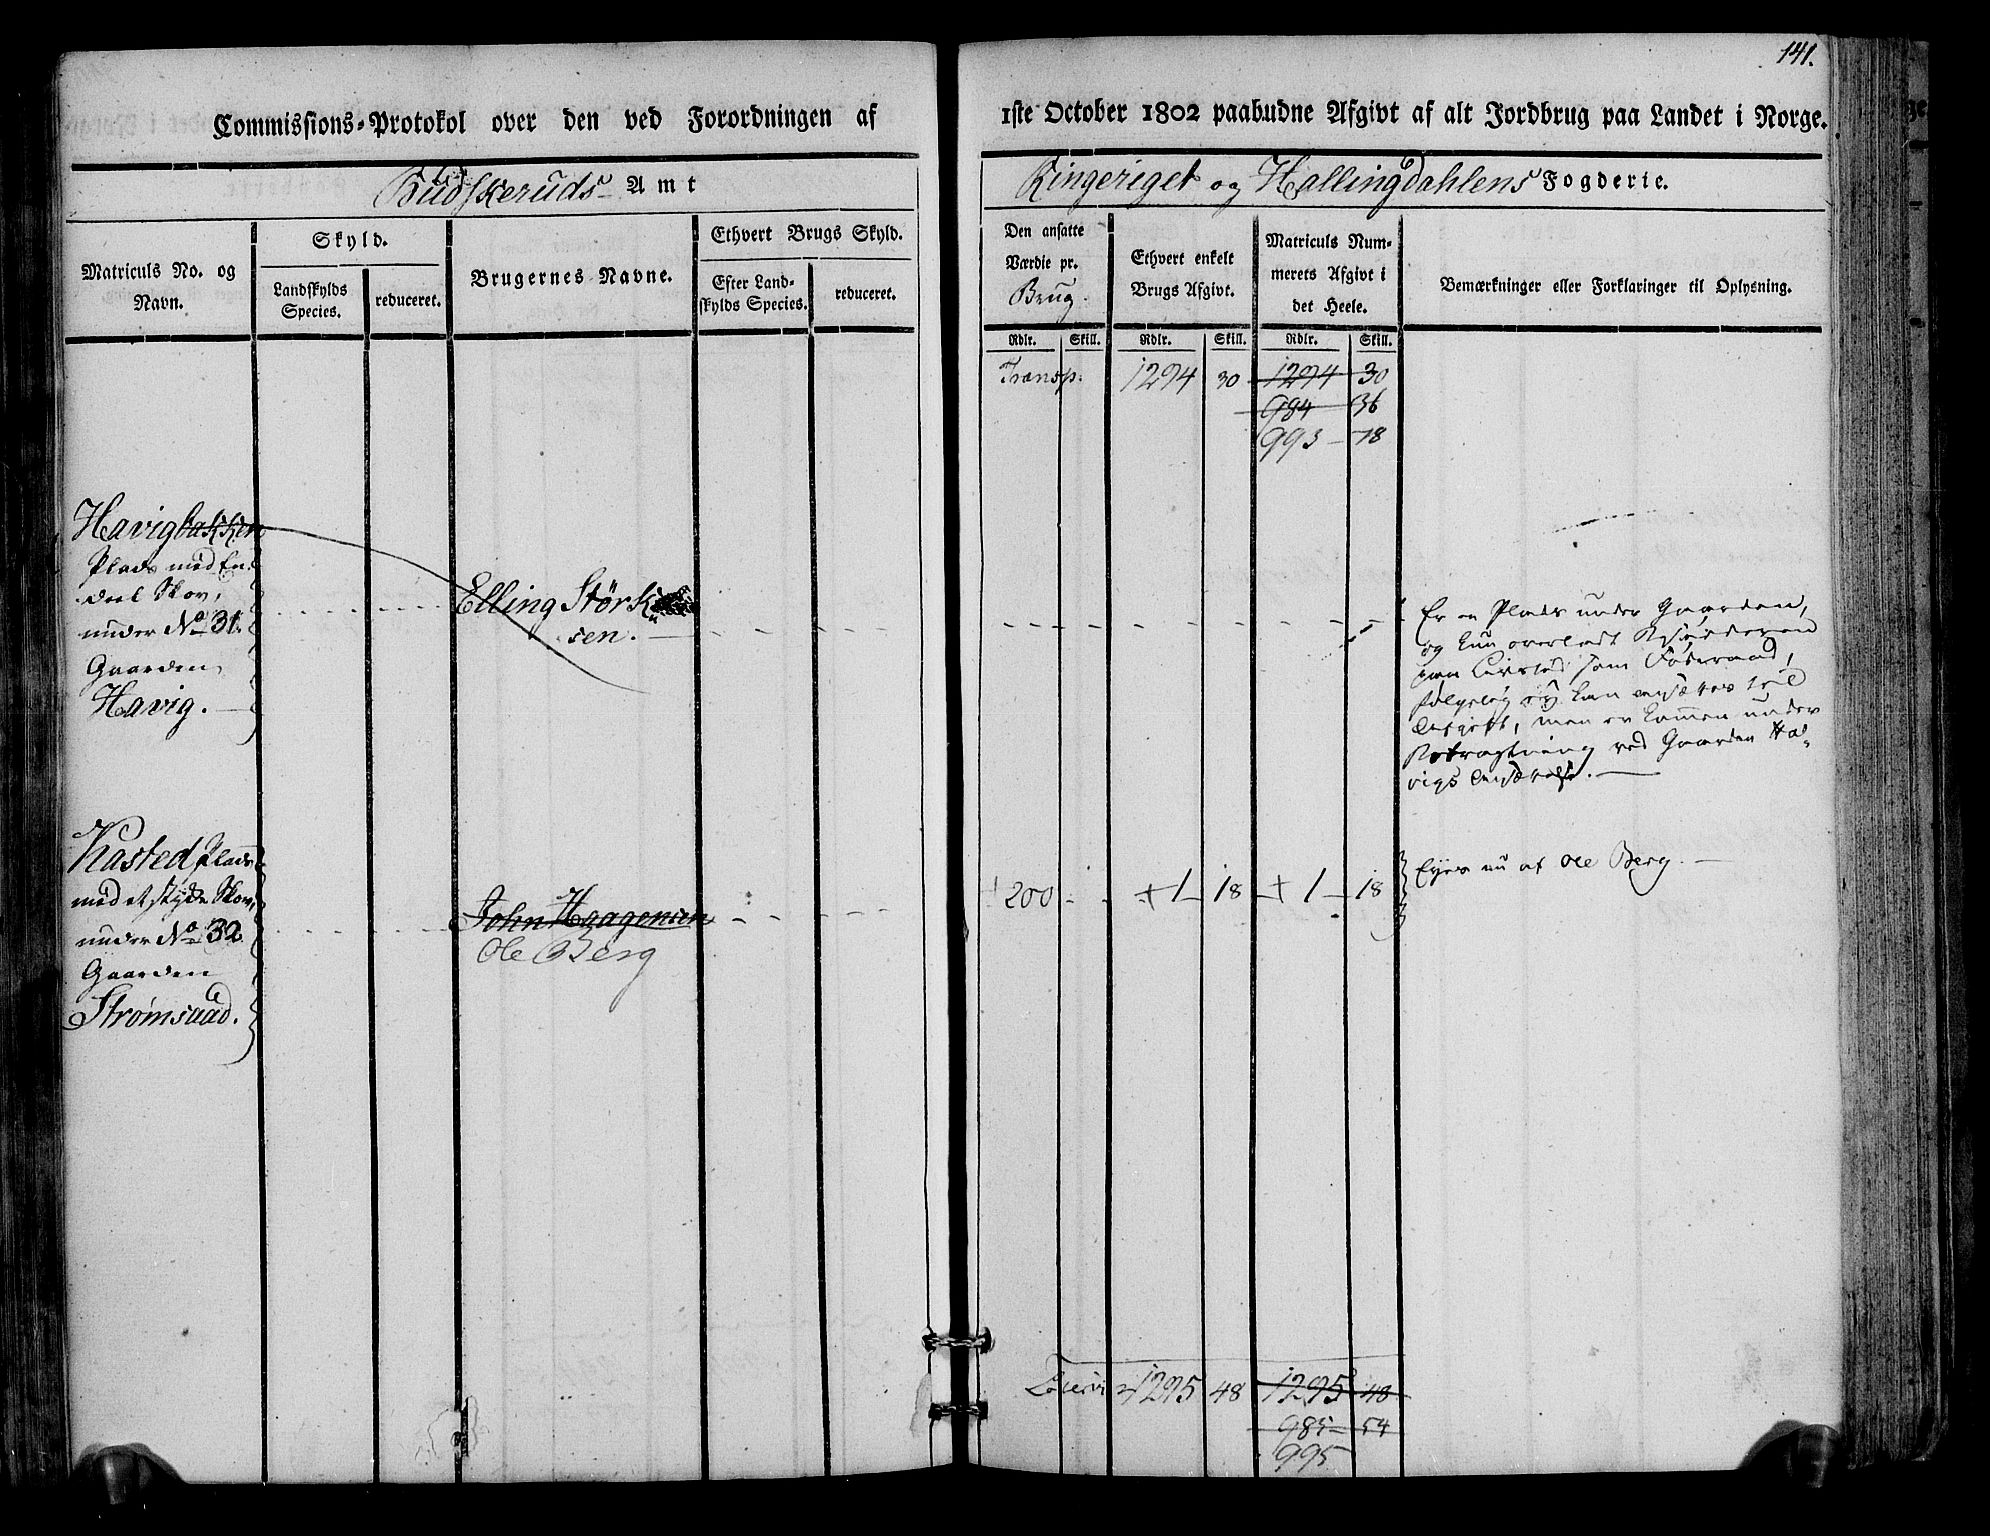 141.
Commissions-Protokol over den ved Forordningen af
1ste October 1802 paabudne Afgivt af alt Jordbrug paa Landet i Norge.
Budskeruds Amt
Ringeriget og Hallingdahlens Fogderie.
Matriculs No. og
Navn.
Skyld.
Landskylds
Species.
reduceret.
Brugernes Navne.
Ethvert Brugs Skyld.
Efter Land-
skylds Species.
reduceret.
Den ansatte
Værdie pr.
Brug.
Ethvert enkelt
Brugs Afgivt.
Matriculs Num-
merets Afgivt i
det Heele.
Bemærkninger eller Forklaringer til Oplysning.
Rdlr. Skill. Rdlr. Skill. Rdlr. Skill.
Transp. 1294 30 1294 30
984 36
993 18
Havigbakken
Plads med En
deel Skov,
under No 31.
Gaarden
Havig.
Elling Störk
sen.
Er en Plads under Gaarden,
og kun overladt
paa Livstid som Föderaad,
kan
men er kommen under
ved Gaarden Ha-
vigs
Kasted Plads
med et stykke Skov,
under No 32
Gaarden
Strømsaad.
John Haagensen
Ole Berg
200 1 18 1 18
Ejes nu af Ole Berg.
1295 48 1295 48
985 54
995